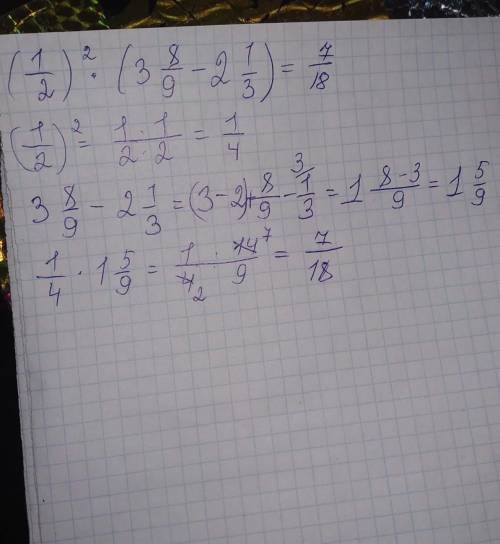 (1/2)² · (3 8/9 − 2 1/3) = 7/18
(1/2)² = 1·1/2·2 = 1/4
3 8/9 − 2 1/3 = (3−2)+8/9 − 1/3 3/ = 1 8−3/9 = 1 5/9
1/4 · 1 5/9 = 1 · 14 7/4 2 9 = 7/18